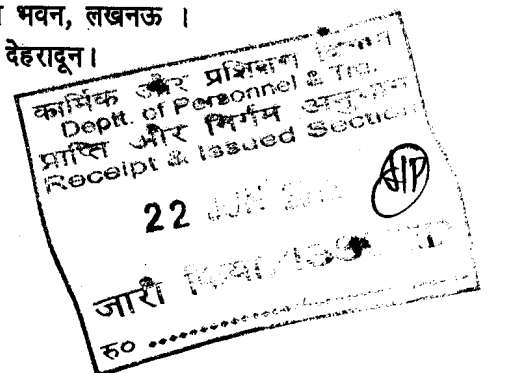 भवन, लखनऊ ।
देहरादून।
कार्मिक और प्रशिक्षण विभाग
Deptt. of Personnel & Trg.
प्राप्ति और निर्गम अनुभाग
Receipt & Issued Section
22 JUN
A/P
जारी किया/ISSUED
रु०